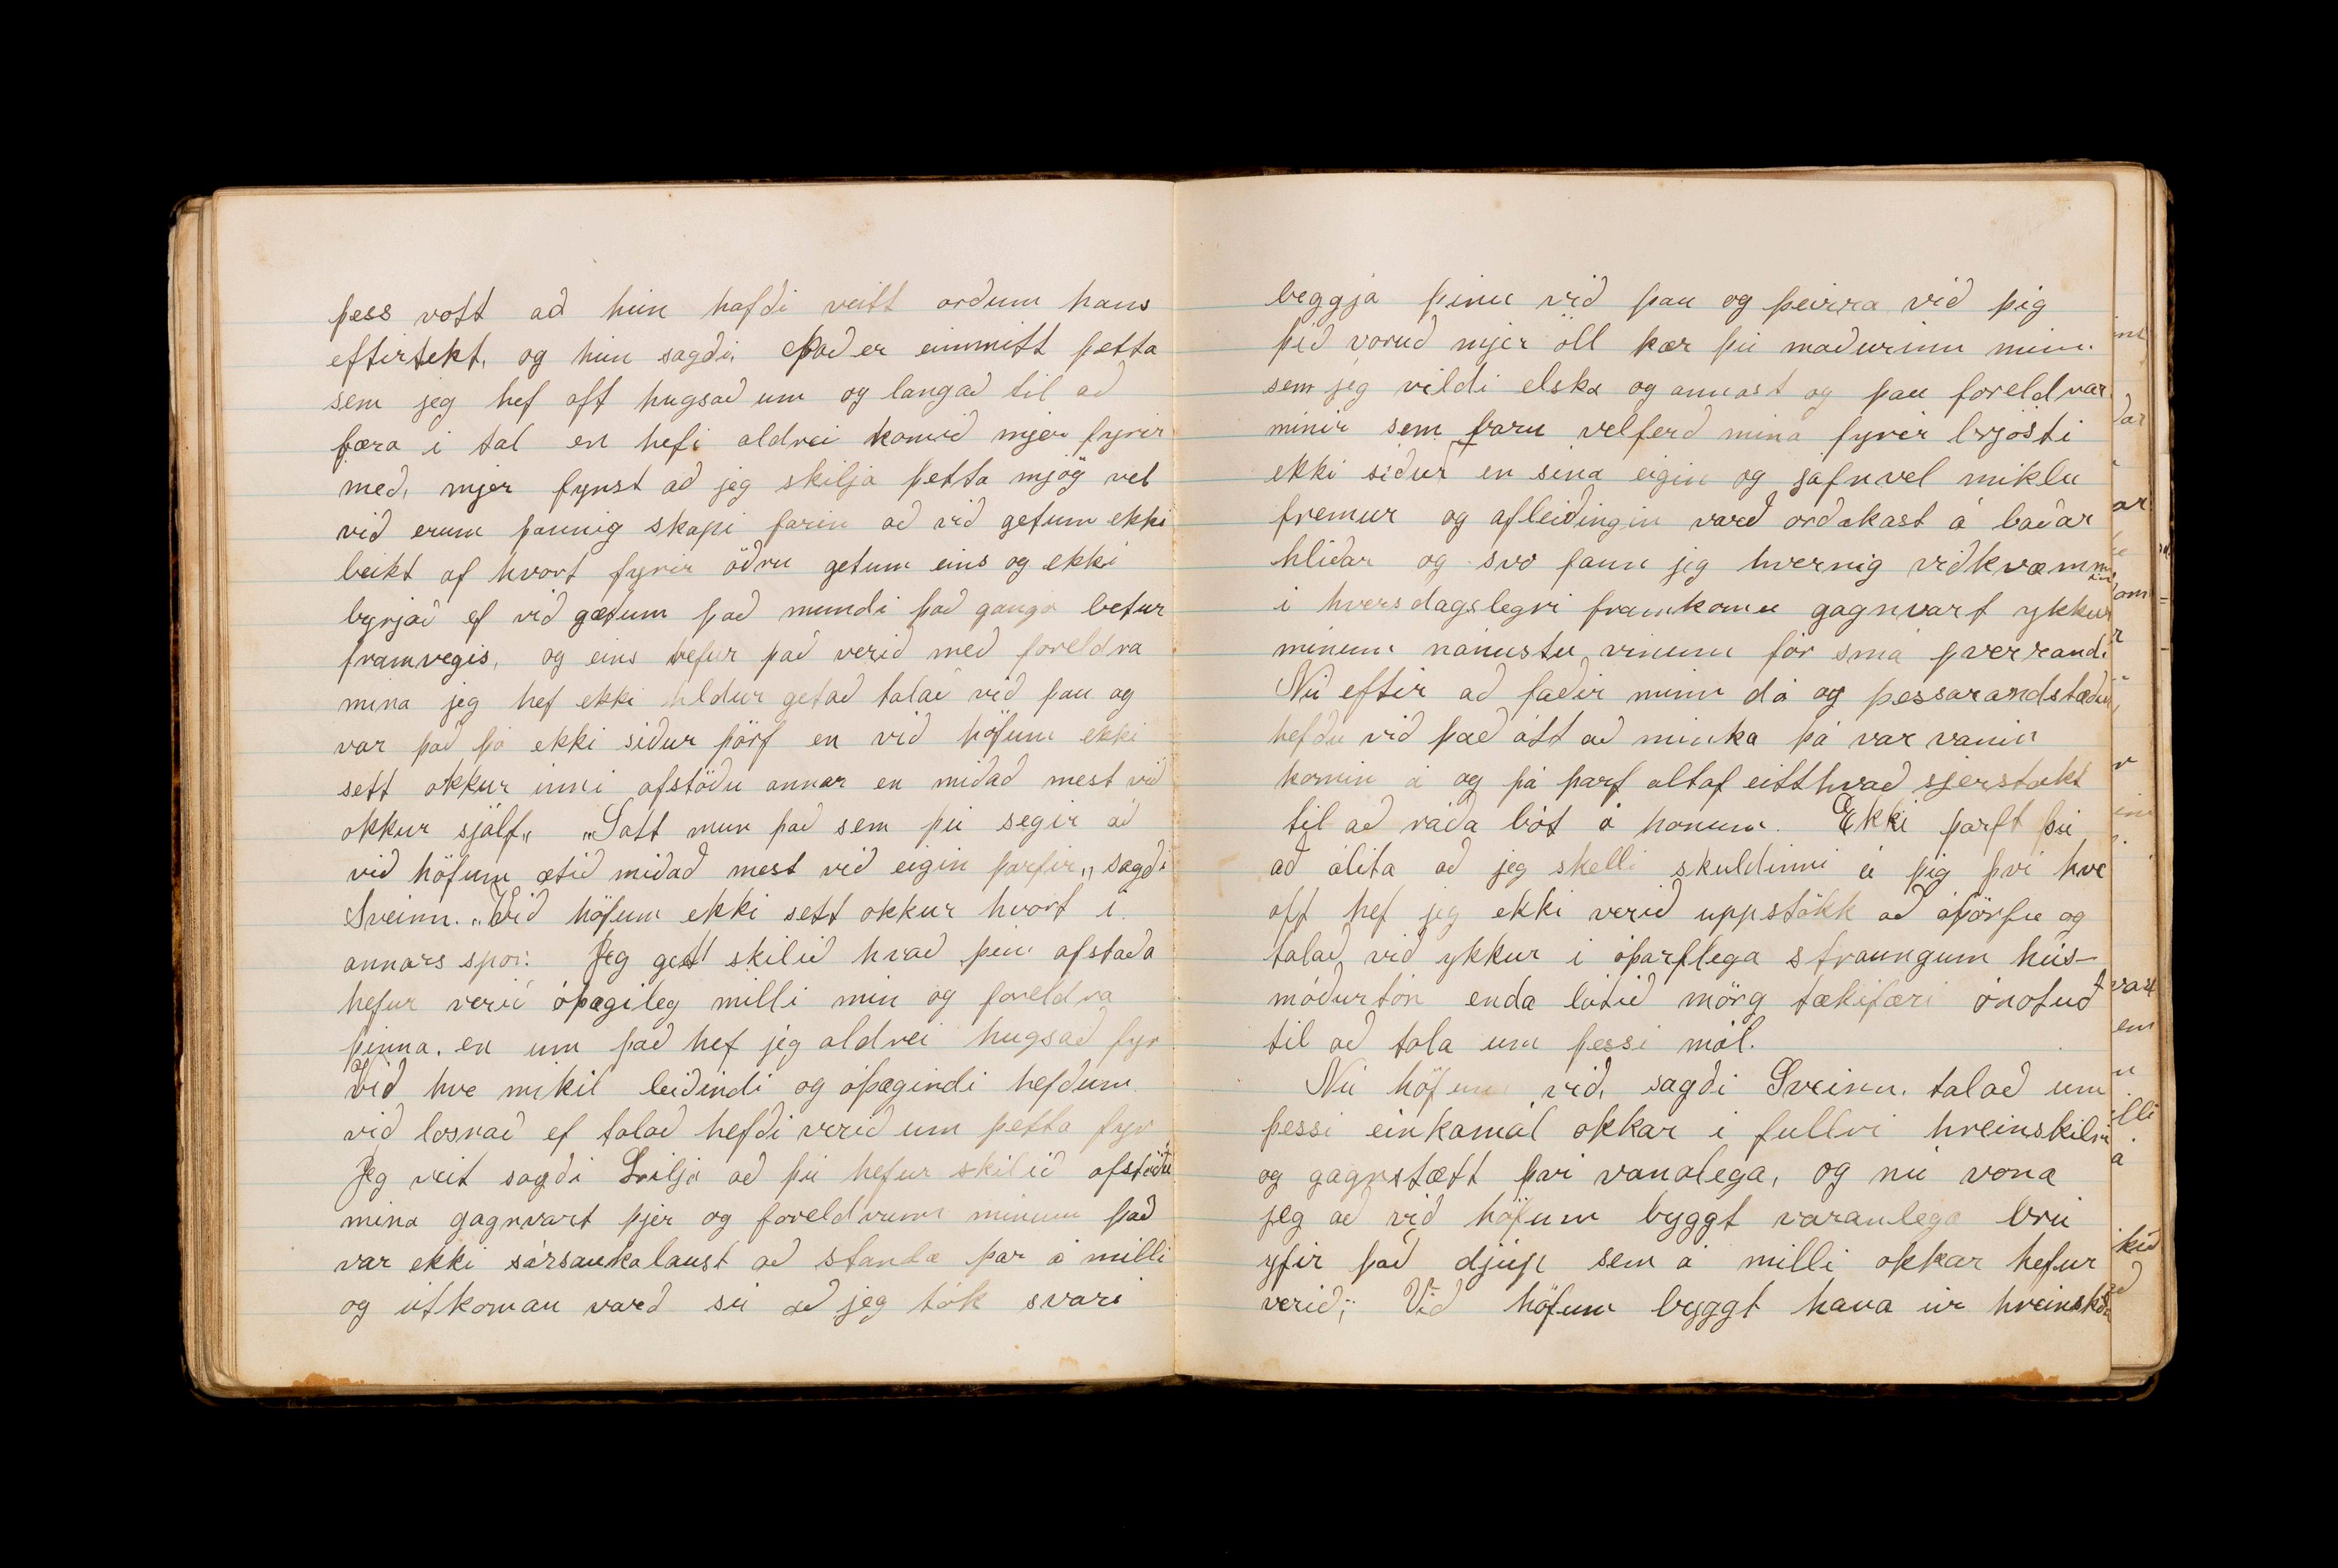 þess vott að hún hafði veitt orðum hans
eftirtekt, og hún sagði, Það er einmitt þetta
sem jeg hef oft hugsað um og langað til að
færa i tal en hefi aldrei komið mjer fyrir
með, mjer fynst að jeg skilja þetta mjög vel
við erum þannig skapi farin að við getum ekki
leikt af hvort fyrir öðru getum eins og ekki
byrjað ef við gætum það mundi það ganga betur
framvegis, og eins hefur það verið með foreldra
mina jeg hef ekki heldur getað talað við þau og
var það þó ekki siður þörf en við höfum ekki
sett okkur inni afstöðu annar en miðað mest við
okkur sjálf„ „Satt mun það sem þú segir að
við höfum ætið miðað mest við eigin þarfir„ sagði
Sveinn. „Við höfum ekki sett okkur hvort i
annars spor. Jeg get skilið hvað þin afstaða
hefur verið óþægileg milli min og foreldra
þinna. en um það hef jeg aldrei hugsað fyr
Við hve mikil leiðindi og óþægindi hefðum
við losnað ef talað hefði verið um þetta fyr
Jeg veit sagði Lilja að þú hefur skilið afstöðu
mina gagnvart þjer og foreldrum minum það
var ekki sársaukalaust að standa þar á milli
og útkoman varð sú að jeg tók svari
beggja þinu við þau og þeirra við þig
þið voruð mjer öll kær þú maðurinn minn
sem jeg vildi elska og annast og þau foreldrar
minir sem báru velferð mina fyrir brjósti
ekki siður en sina eigin og jafnvel miklu
fremur og afleiðingin varð orðakast á báðar
hliðar og svo fann jeg hvernig viðkvæmnin
i hversdagslegri framkomu gagnvart ykkur
minum nánustu vinum fór smá þverrandi
Nú eftir að faðir minn dó og þessar andstæður
hefðu við það átt að minka þá var vanin
komin á og þá þarf altaf eitthvað sjerstakt
til að ráða bót á honum. Ekki þarft þú
að álita að jeg skelli skuldinni á þig þvi hve
oft hef jeg ekki verið uppstökk að óþörfu og
talað við ykkur i óþarflega straungum hús-
móðurtón enda látið mörg tækifæri ónotuð
til að tala um þessi mál.
Nú höfum við, sagði Sveinn, talað um
þessi einkamál okkar i fullri hreinskilni
og gagnstætt þvi vanalega, og nú vona
jeg að við höfum byggt varanlega brú
yfir það djúp sem á milli okkar hefur
verið; Við höfum byggt hana úr hreinskilni